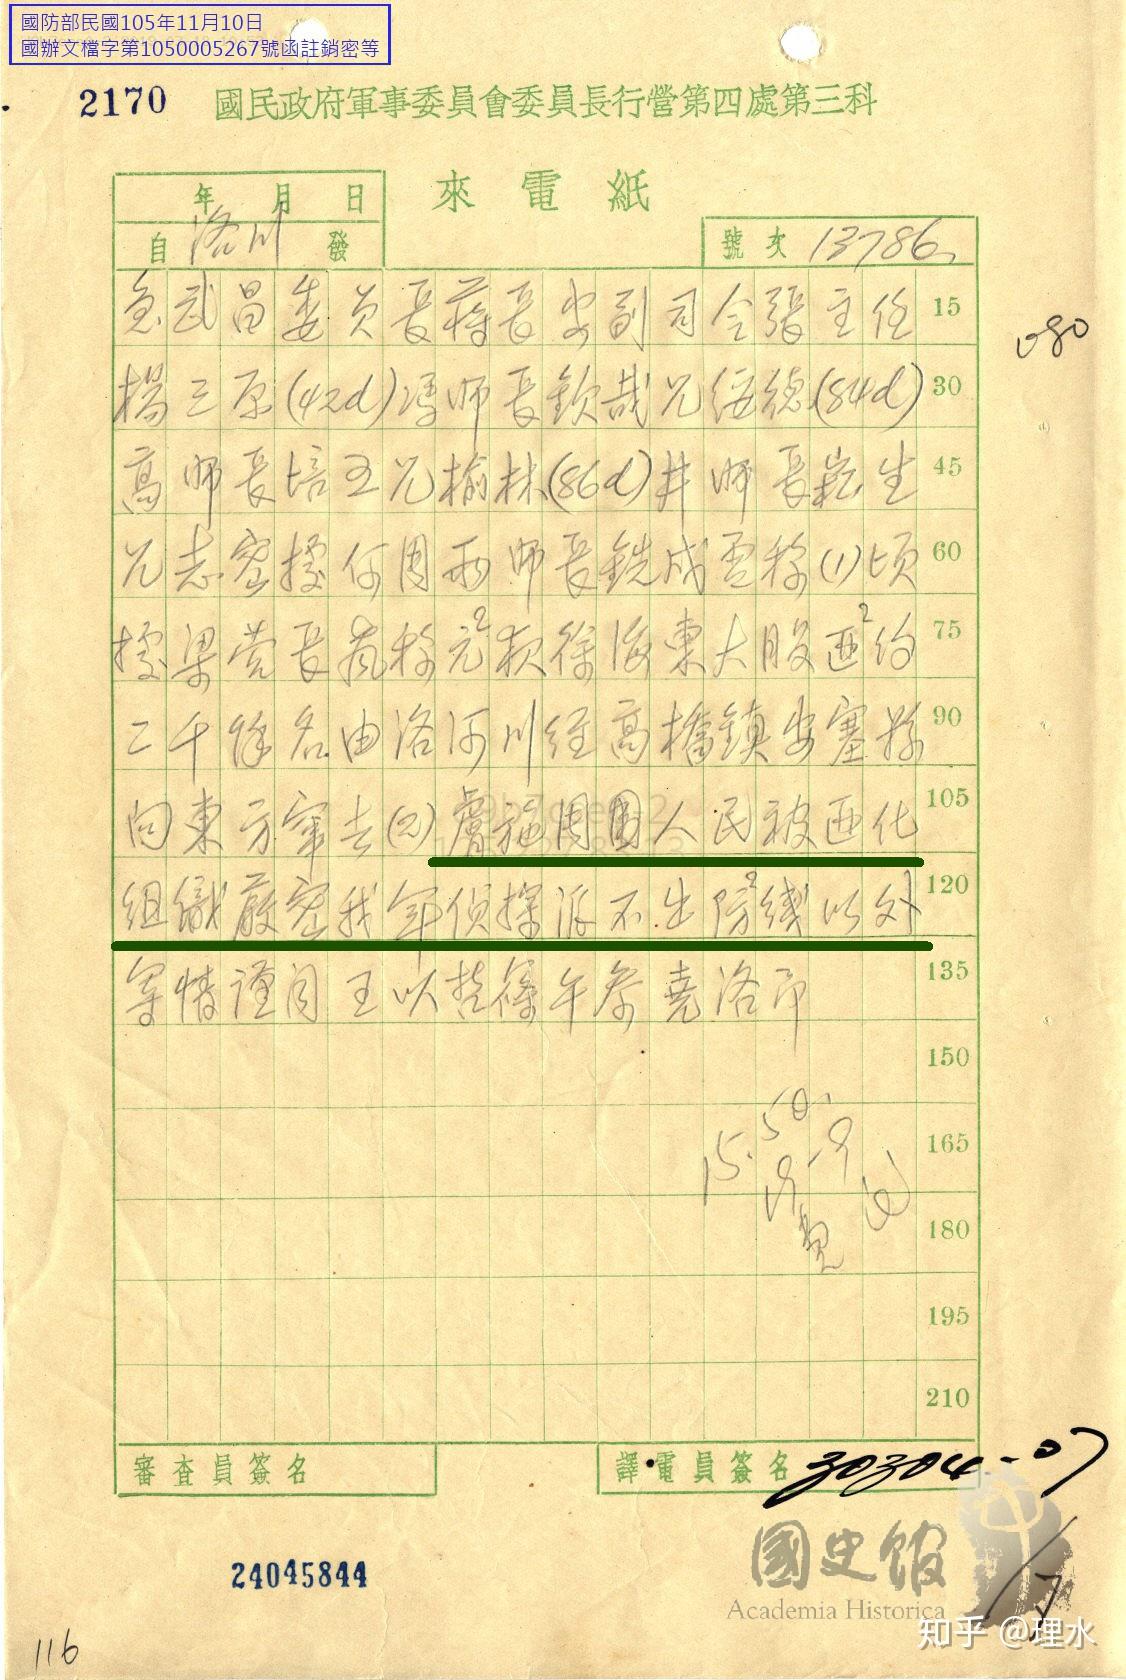 國防部民國105年11月10日
國辦文檔字第1050005267號函註銷密等
2170 國民政府軍事委員會委員長行營第四處第三科
來電紙
年 月 日
自 洛川 發
號次 13786
急武昌委員長蔣長安副司令張主任 15
080
楊三原(42d)馮師長欽哉兄綏德(84d) 30
高師長培五兄榆林(86d)井師長崧生 45
兄志密據何周兩師長銑成電稱(1)頃 60
據梁营長稱元徐海東大股匪約 75
二千餘名由洛河川經高橋鎮安塞縣 90
向東方竄去(2)膚施周圍人民被匪化 105
組織嚴密我軍偵探派不出防綫以外 120
等情謹聞王以哲篠午參堯洛印 135
150
15.50
165
180
195
210
審查員簽名
譯電員簽名
30304-07
24045844
國史館
Academia Historica
知乎 @理水
116